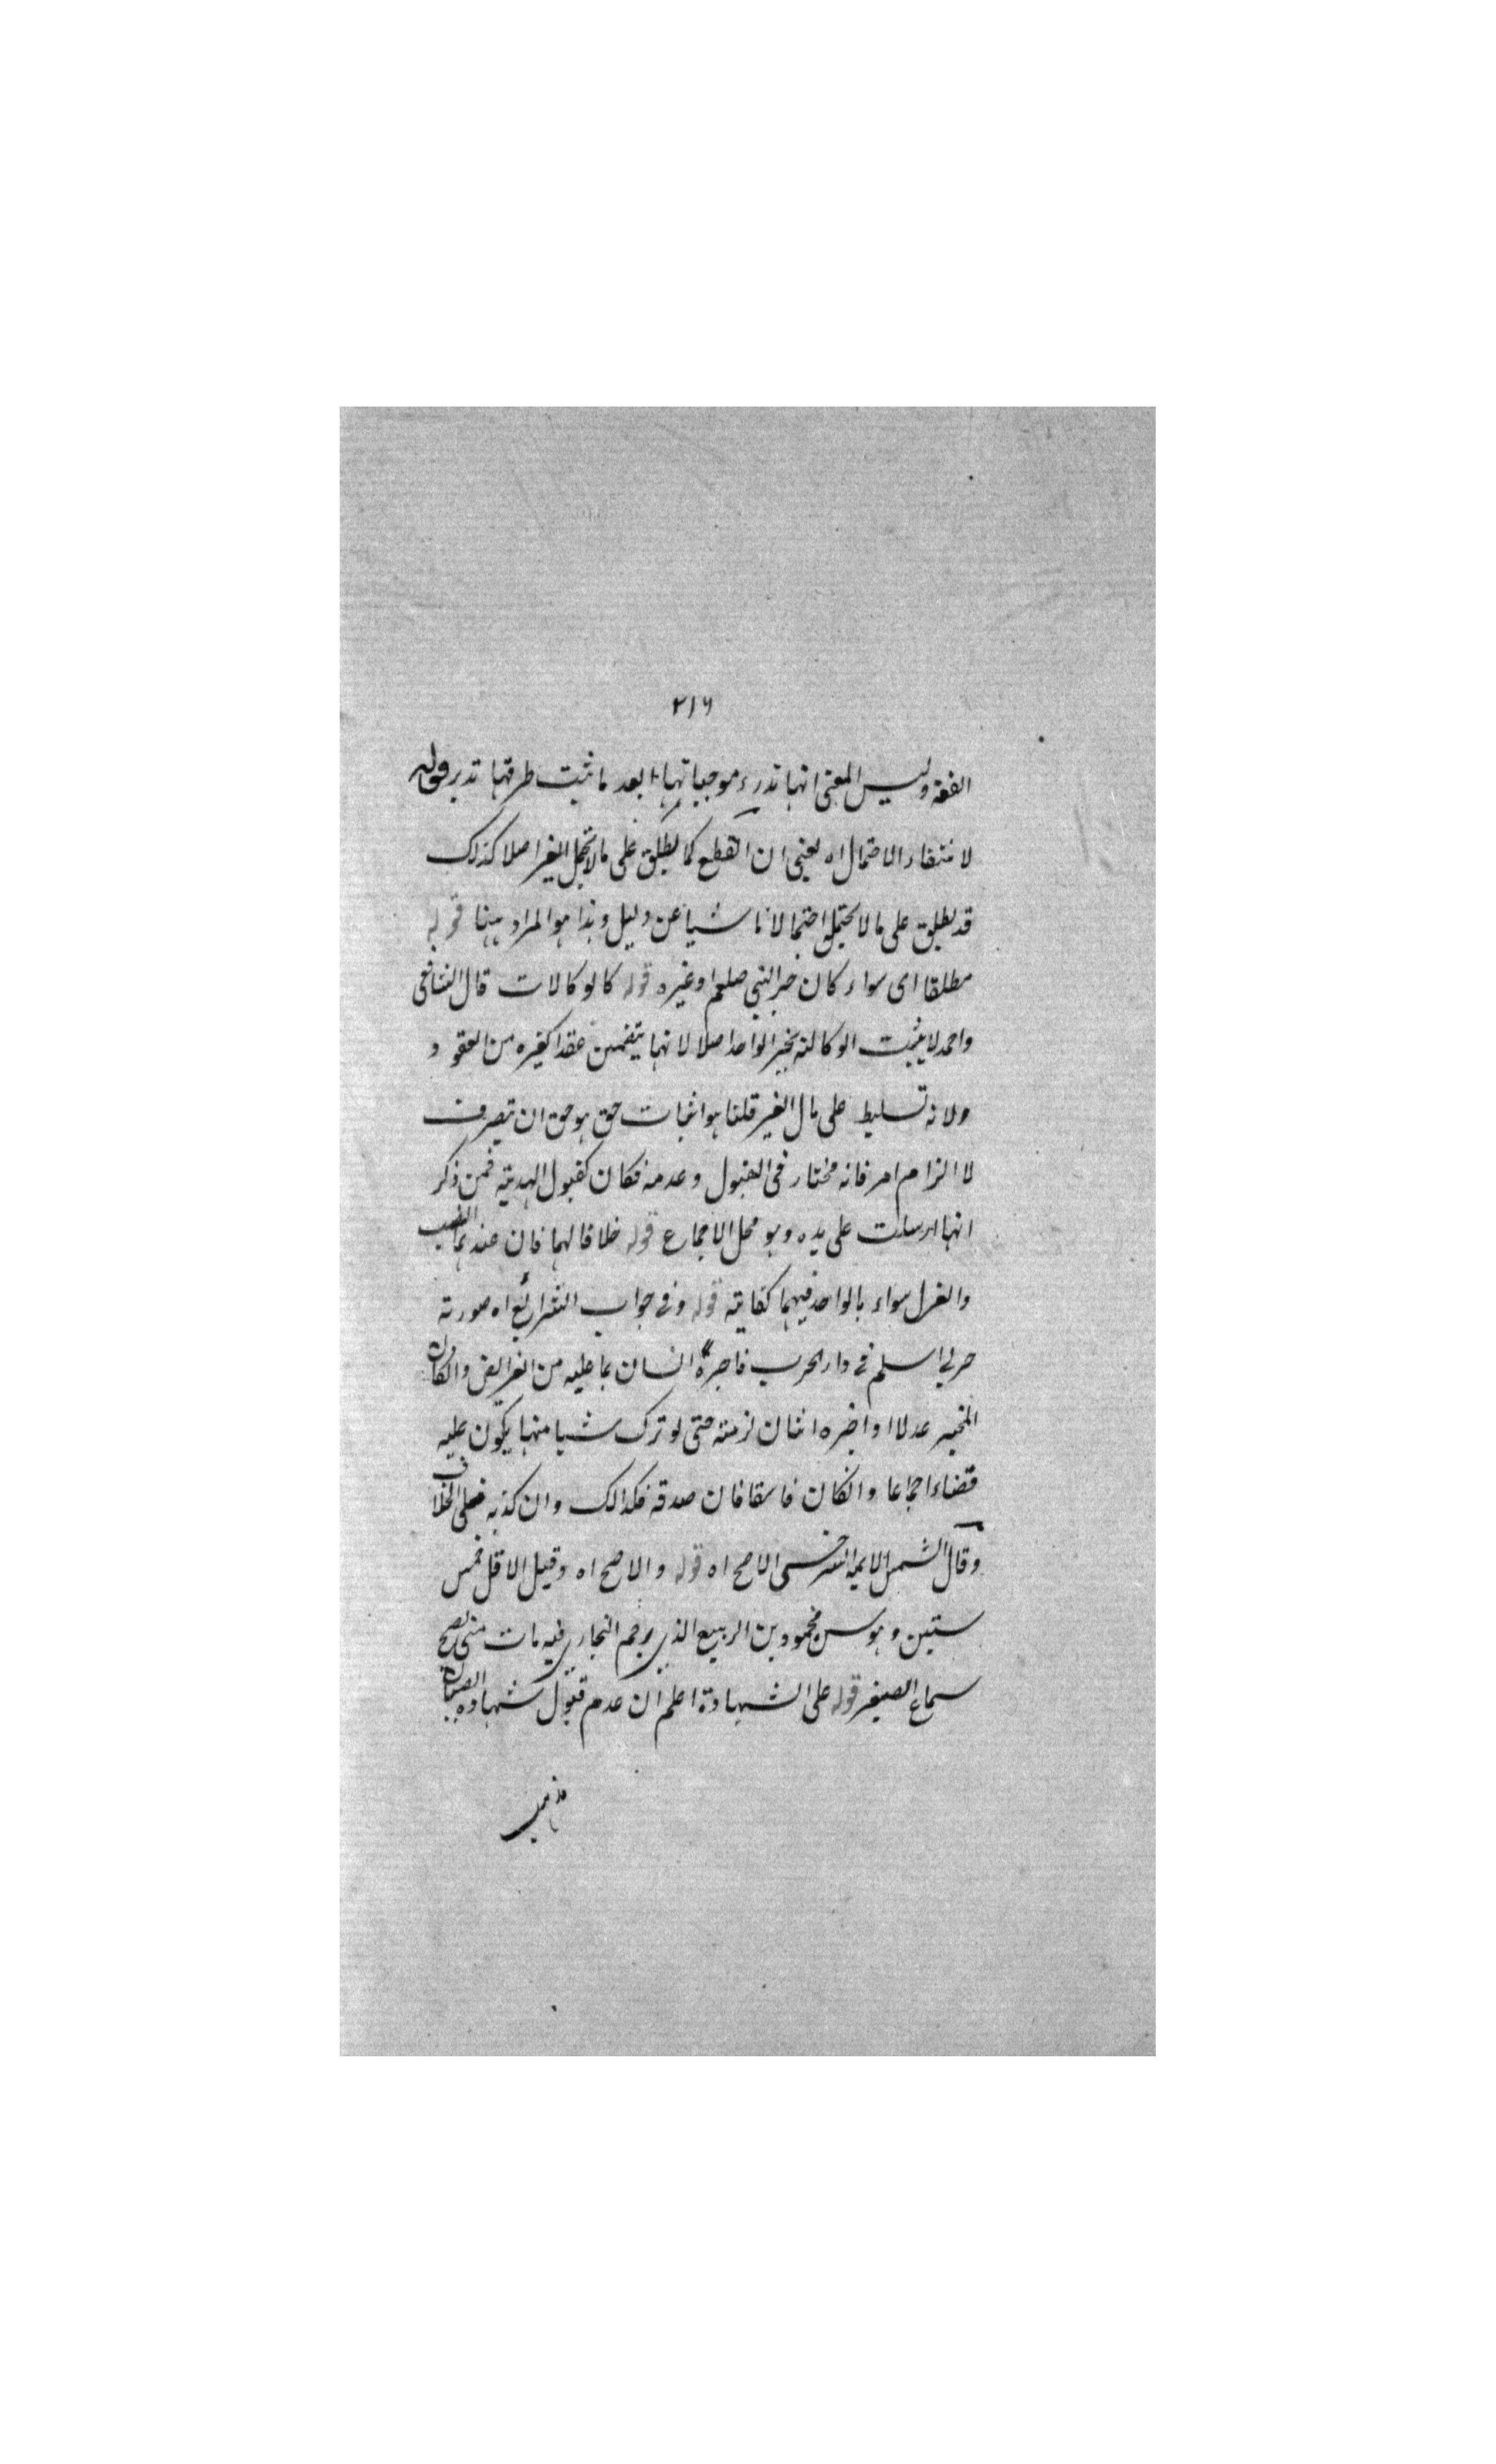 ٢١٦
الفقه وليس المعنى انها تدرء موجباتها بعد ما ثبت طرقها تدبر قوله
لانتفاء الاحتمال اه يعنى ان القطع كما يطلق على مالا يحتمل الغير اصلا كذلك
قد يطلق على مالا يحتمل احتمالا ناشيا عن دليل وهذا هو المراد ههنا قوله
مطلقا اى سواء كان خبر النبى صلعم او غيره قوله كالوكالات قال الشافعى
واحمد لا يثبت الوكالة بخبر الواحد اصلا لانها يتضمن عقدا كغيره من العقود
ولانه تسليط على مال الغير قلنا هو اثبات حق هو حق ان تصرف
لا الزام امر فانه مختار فى القبول وعدمه فكان كقبول الهدية فمن ذكر
انها ارسلت على يده وهو محل الاجماع قوله خلافا لهما فان عندهما النصب
والعزل سواء بالواحد فيهما كفاية قوله وفى جواب الشرائع اه صورته
حربى اسلم فى دار الحرب فاخبره انسان بما عليه من الفرايض وانكان
المخبر عدلا او اخبره اثنان لزمته حتى لو ترك شيا منها يكون عليه
قضاء اجماعا وانكان فاسقا فان صدقه فكذالك وان كذبه فعلى الخلاف
وقال الشمس الايمة السرخسى الاصح اه قوله والاصح اه وقيل الاقل خمس
ستين وهو سن محمود بن الربيع الذى ترجم البخارى فيه مات متى يصح
سماع الصغير قوله على الشهادة اعلم ان عدم قبول شهادة الصبيان